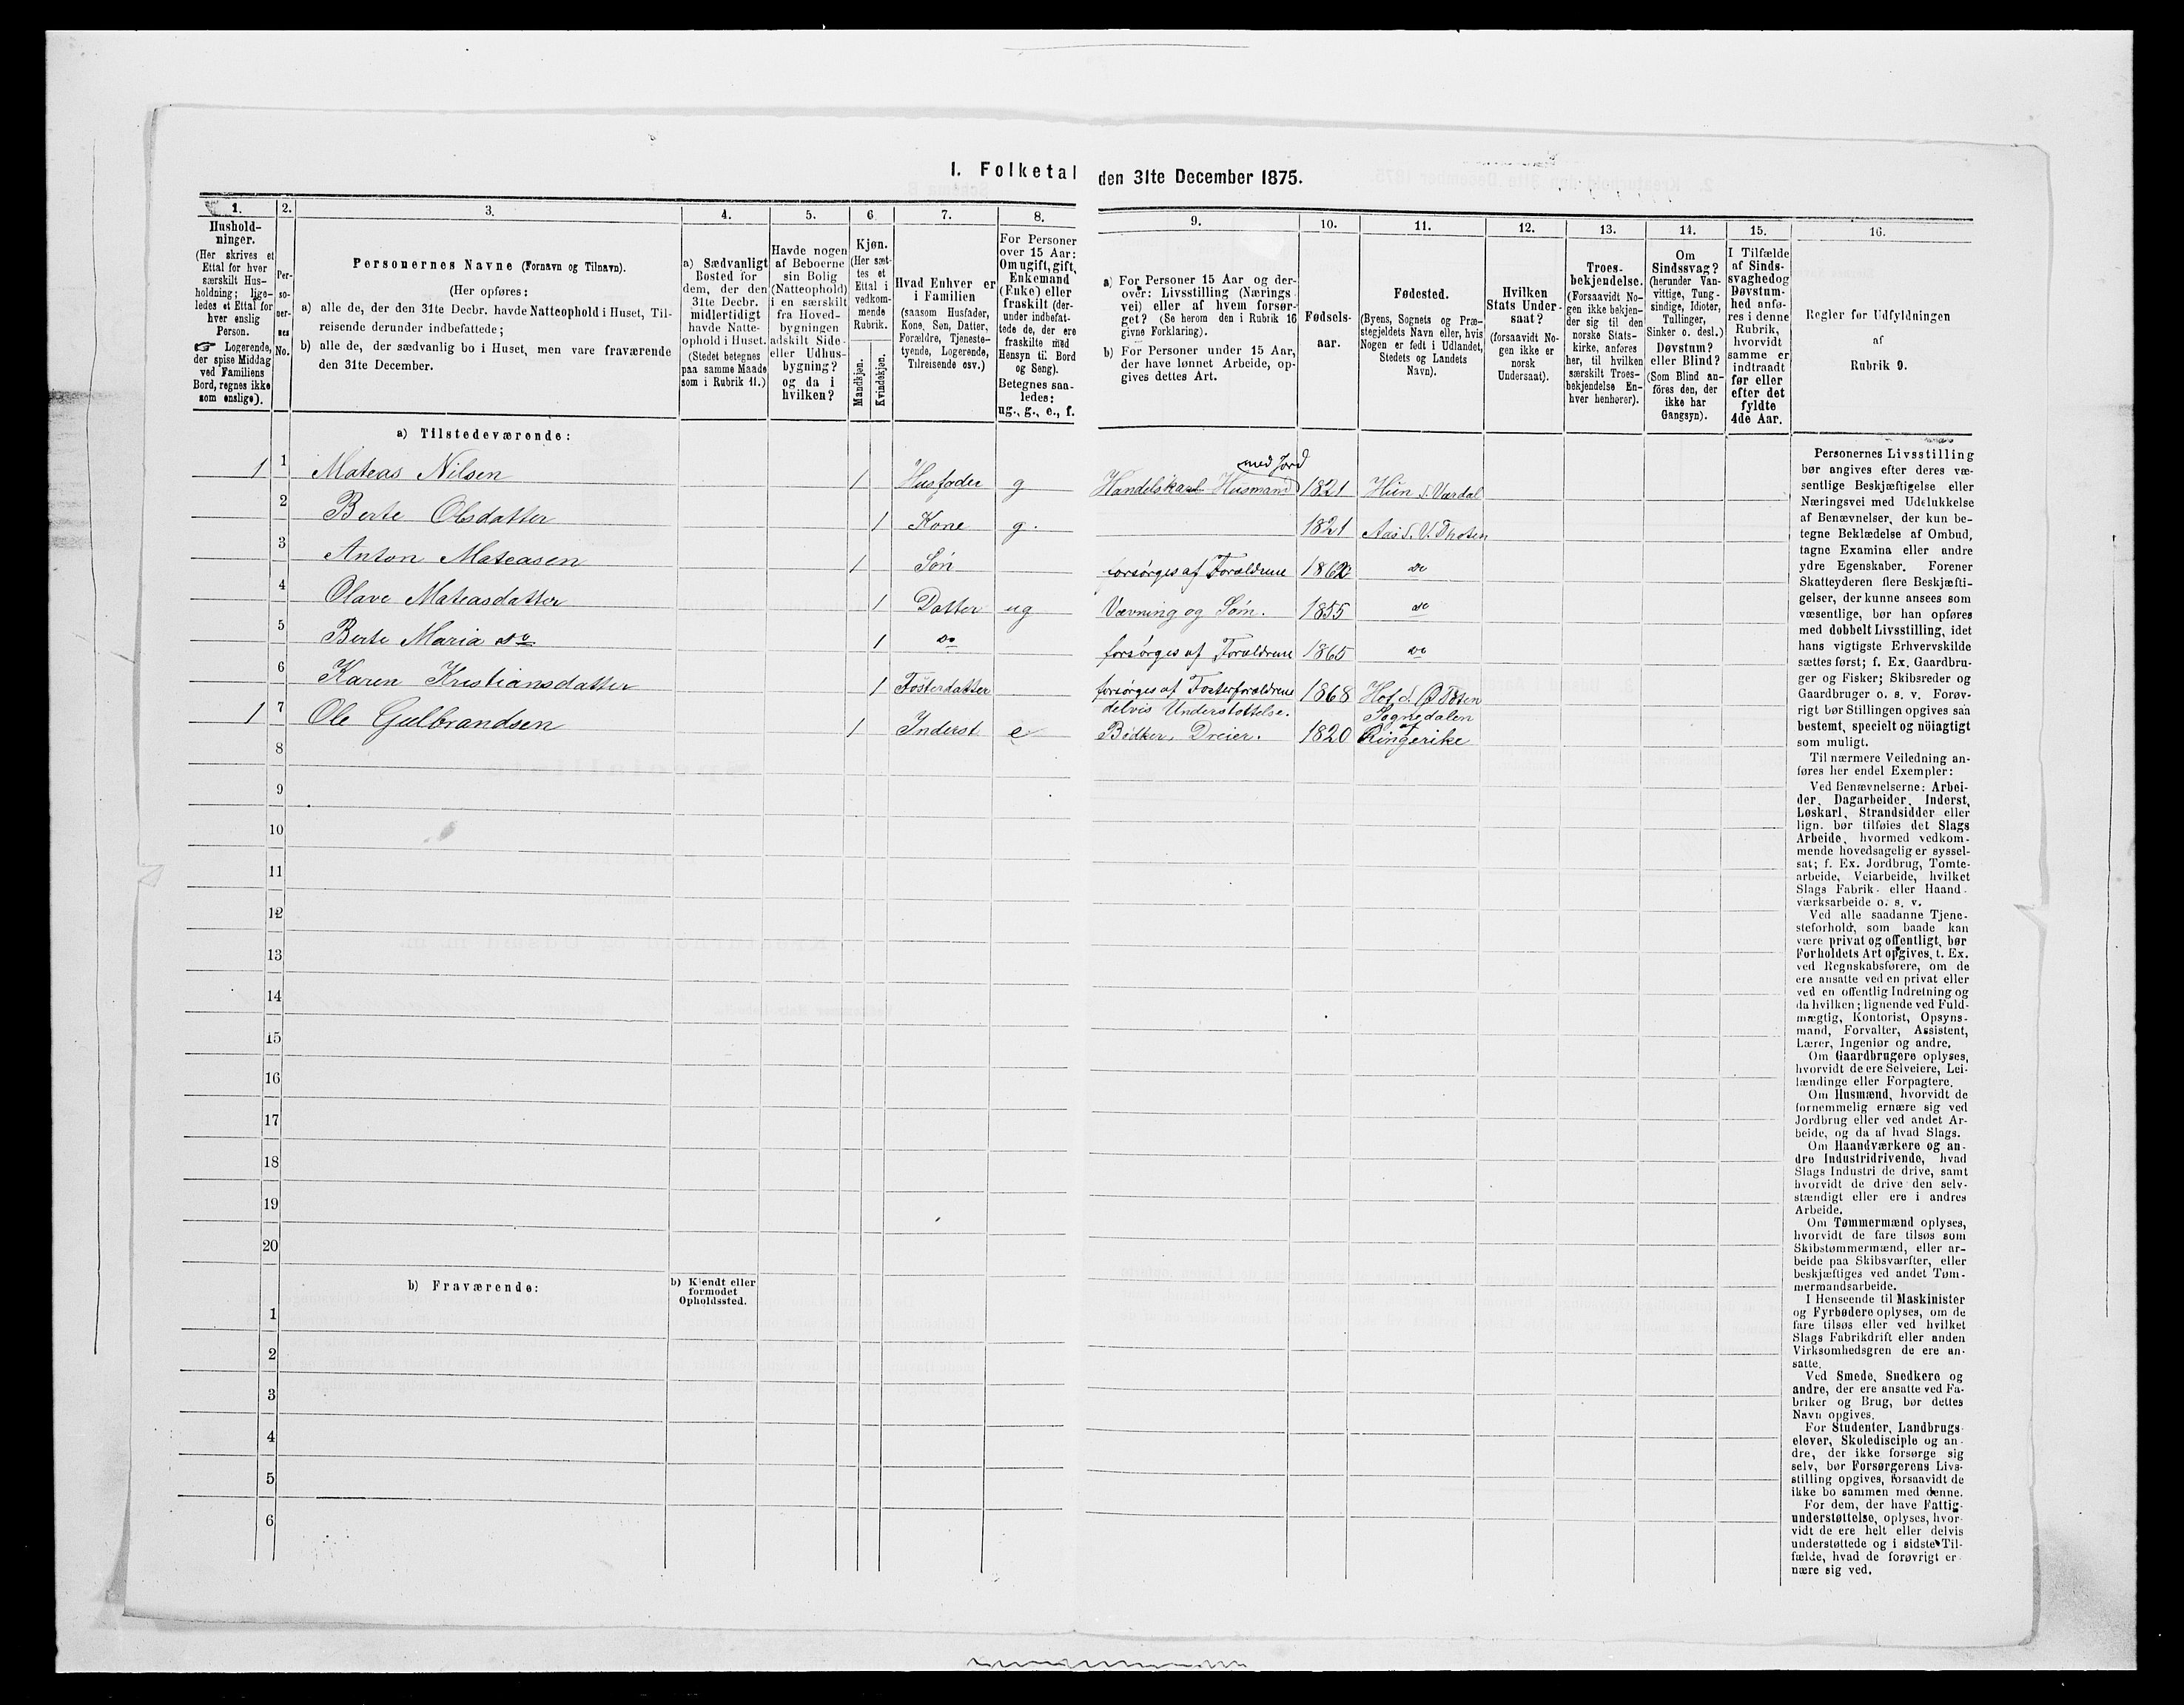 I. Folketal den 31te December 1875.
1.
Hushold-
ninger.
(Her skrives et
Ettal for hver
særskilt Hus-
holdning; lige-
ledes et Ettal for
hver enslig
Person.
☞ Logerende,
der spise Middag
ved Familiens
Bord, regnes ikke
som enslige).
2.
Per-
so-
ner-
nes
No.
3.
Personernes Navne (Fornavn og Tilnavn).
(Her opføres:
a) alle de, der den 31te Decbr. havde Natteophold i Huset, Til-
reisende derunder indbefattede;
b) alle de, der sædvanlig bo i Huset, men vare fraværende
den 31te December.
4.
a) Sædvanligt
Bosted for
dem, der den
31te Decbr.
midlertidigt
havde Natte-
ophold i Huset.
(Stedet betegnes
paa samme Maade
som i Rubrik 11.)
5.
Havde nogen
af Beboerne
sin Bolig
(Natteophold)
i en særskilt
fra Hoved-
bygningen
adskilt Side-
eller Udhus-
bygning?
og da i
hvilken?
6
Kjøn.
(Her sæt-
tes et
Ettal i
vedkom-
mende
Rubrik.
Mandkjøn.
Kvindekjøn.
7.
Hvad Enhver er
i Familien
(saasom Husfader,
Kone, Søn, Datter,
Forældre, Tjeneste-
tyende, Logerende,
Tilreisende osv.)
8.
For Personer
over 15 Aar:
Om ugift, gift,
Enkemand
(Enke) eller
fraskilt (der-
under indbefat-
tede de, der ere
fraskilte med
Hensyn til Bord
og Seng).
Betegnes saa-
ledes:
ug., g., e., f.
9.
a) For Personer 15 Aar og der-
over: Livsstilling (Nærings
vei) eller af hvem forsør-
get? (Se herom den i Rubrik 16
givne Forklaring).
b) For Personer under 15 Aar,
der have lønnet Arbeide, op-
gives dettes Art.
10.
Fødsels-
aar.
11.
Fødested.
(Byens, Sognets og Præ-
stegjeldets Navn eller, hvis
Nogen er født i Udlandet,
Stedets og Landets
Navn).
12.
Hvilken
Stats Under-
saat?
(forsaavidt No-
gen ikke er
norsk
Undersaat).
13.
Troes-
bekjendelse.
(Forsaavidt No-
gen ikke bekjen-
der sig til den
norske Stats-
kirke, anføres
her, til hvilken
særskilt Troes-
bekjendelse En-
hver henhører).
14.
Om
Sindssvag?
(herunder Van-
vittige, Tung-
sindige, Idioter,
Tullinger,
Sinker o. desl.)
Døvstum?
eller Blind?
(Som Blind an-
föres den, der
ikke har
Gangsyn).
15.
I Tilfælde
af Sinds-
svaghedog
Døvstum-
hed anfø-
res i denne
Rubrik,
hvorvidt
samme er
indtraadt
før eller
efter det
fyldte
4de Aar.
16.
Regler for Udfyldningen
af
Rubrik 9.
a) Tilstedeværende:
1 1 Mateas Nilsen 1 Husfader g Handelskarl Husmand med Jord 1821 Hun S. Vardal
2 Berte Olsdatter 1 Kone g. 1821 Aas S. V. Thoten
3 Anton Mateasen 1 Søn forsørges af Forældrene 1862 do
4 Olave Mateasdatter 1 Datter ug Vævning og Søm. 1855 do
5 Berte Maria do 1 do forsørges af Forældrene 1865 do
6 Karen Kristiansdatter 1 Fosterdatter forsørges af Fosterforældrene 1868 Hof S. Ø Toten
delvis Understøttelse.
1 7 Ole Gulbrandsen 1 Inderst e Bødker, Dreier. 1820 Sognedalen
Ringerike
8
9
10
11
12
13
14
15
16
17
18
19
20
b) Fraværende:
b) Kjendt eller
formodet
Opholdssted.
1
2
3
4
5
6
Personernes Livsstilling
bør angives efter deres væ-
sentlige Beskjæftigelse eller
Næringsvei med Udelukkelse
af Benævnelser, der kun be-
tegne Beklædelse af Ombud,
tagne Examina eller andre
ydre Egenskaber. Forener
Skatteyderen flere Beskjæfti-
gelser, der kunne ansees som
væsentlige, bør han opføres
med dobbelt Livsstilling, idet
hans vigtigste Erhvervskilde
sættes først; f. Ex. Gaardbru-
ger og Fisker; Skibsreder og
Gaardbruger o. s. v. Forøv-
rigt bør Stillingen opgives saa
bestemt, specielt og nöiagtigt
som muligt.
Til nærmere Veiledning an-
føres her endel Exempler:
Ved Benævnelserne: Arbei-
der, Dagarbeider, Inderst,
Løskarl, Strandsidder eller
lign. bør tilføies det Slags
Arbeide, hvormed vedkom-
mende hovedsagelig er syssel-
sat; f. Ex. Jordbrug, Tomte-
arbeide, Veiarbeide, hvilket
Slags Fabrik- eller Haand-
værksarbeide o. s. v.
Ved alle saadanne Tjene-
steforhold, som baade kan
være privat og offentligt, bør
Forholdets Art opgives, t. Ex.
ved Regnskabsførere, om de
ere ansatte ved en privat eller
ved en offentlig Indretning og
da hvilken; lignende ved Fuld-
mægtig, Kontorist, Opsyns-
mand, Forvalter, Assistent,
Lærer, Ingeniør og andre.
Om Gaardbrugere oplyses,
hvorvidt de ere Selveiere, Lei-
lændinge eller Forpagtere.
Om Husmænd, hvorvidt de
fornemmelig ernære sig ved
Jordbrug eller ved andet Ar-
beide, og da af hvad Slags.
Om Haandværkere og an-
dre Industridrivende, hvad
Slags Industri de drive, samt
hvorvidt de drive den selv-
stændigt eller ere i andres
Arbeide.
Om Tømmermænd oplyses,
hvorvidt de fare tilsøs som
Skibstømmermænd, eller ar-
beide paa Skibsværfter, eller
beskjæftiges ved andet Tøm-
mermandsarbeide.
I Henseende til Maskinister
og Fyrbødere oplyses, om de
fare tilsøs eller ved hvilket
Slags Fabrikdrift eller anden
Virksomhedsgren de ere an-
satte.
Ved Smede, Snedkere og
andre, der ere ansatte ved Fa-
briker og Brug, bør dettes
Navn opgives.
For Studenter, Landbrugs
elever, Skoledisciple og an-
dre, der ikke forsørge sig
selv, bør Forsørgerens Livs-
stilling opgives, forsaavidt de
ikke bo sammen med denne.
For dem, der have Fattig-
understøttelse, oplyses, hvor-
vidt de ere helt eller delvis
understøttede og i sidste Til-
fælde, hvad de forøvrigt er-
nære sig ved.